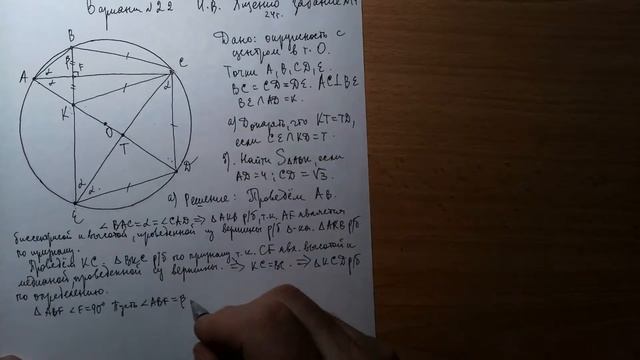 Вариант №22 И.В. Ященко задание №17
24г.
Дано: окружность с
центром в т. О.
Точки А, В, С, D, Е.
BC = CD = DE. AC⊥BE
BE ∩ AD = K.
а) Доказать, что KT = TD,
если CE ∩ KD = T.
б) Найти S если
AD = 4; CD = √3.
а) Решение: Проведём AB.
∠BAC = α = ∠CAD, ⇒ ΔAKB р/б, т.к. AF является
биссектрисой и высотой, проведённой из вершины р/б Δ-ка. ΔAKB р/б
по признаку.
Проведём KC. ΔBKC р/б по признаку, т.к. CF явл. высотой и
медианой, проведённой из вершины. ⇒ KC = BC. ⇒ ΔKCD р/б
по определению.
ΔABF ∠F = 90° Пусть ∠ABF = β
A
B
C
D
E
F
K
O
T
α
α
β
α
α
α